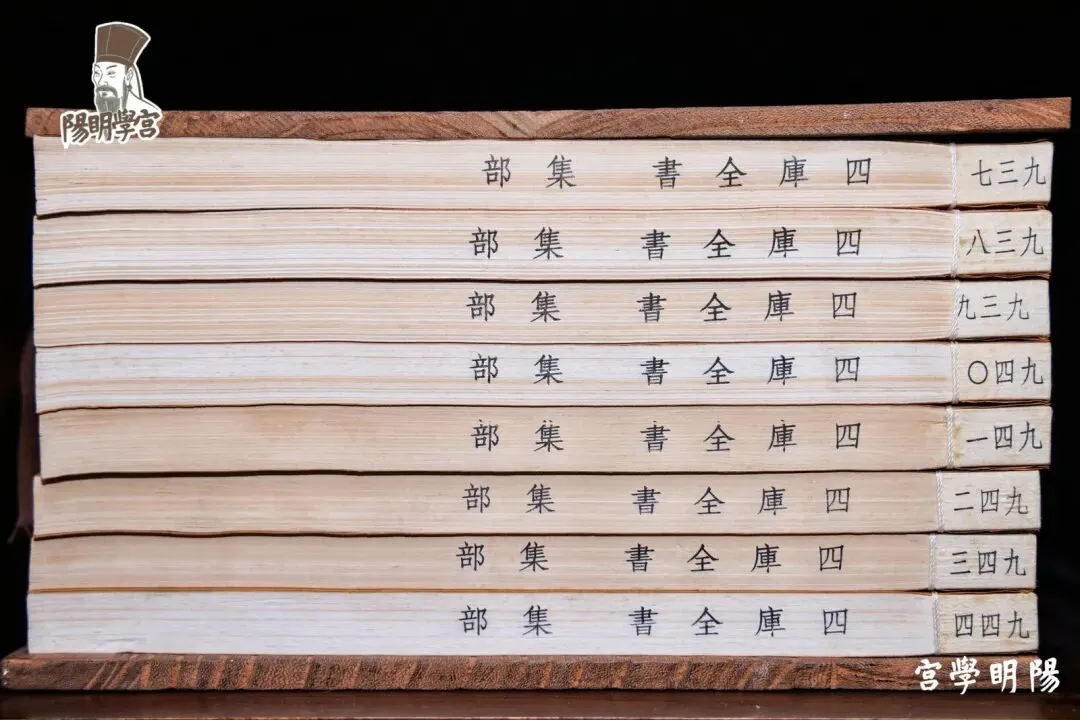 陽明學宮
九三七 四庫全書 集部
九三八 四庫全書 集部
九三九 四庫全書 集部
九四〇 四庫全書 集部
九四一 四庫全書 集部
九四二 四庫全書 集部
九四三 四庫全書 集部
九四四 四庫全書 集部
陽明學宮